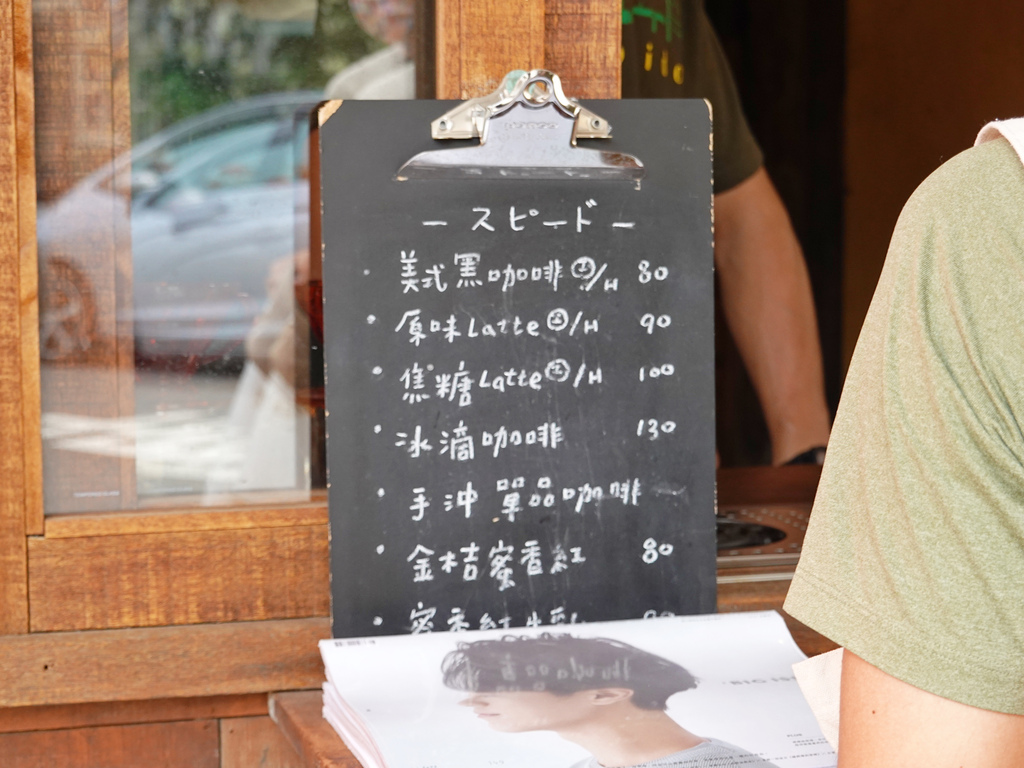 - スピード -
· 美式黑咖啡 冰/H 80
· 原味Latte 冰/H 90
· 焦糖Latte 冰/H 100
· 冰滴咖啡 130
· 手沖 單品咖啡
· 金桔蜜香紅 80
· 蜜香紅牛乳 90